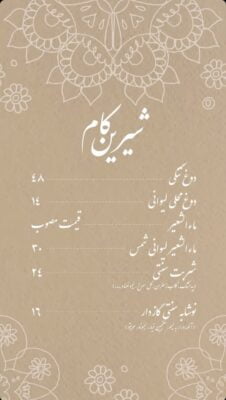 شیرین کام
دوغ تنگی ۴۸
دوغ محلی لیوانی ۱۴
ماءالشعیر قیمت مصوب
ماءالشعیر لیوانی شمس ۳۰
شربت سنتی ۲۴
نوشابه سنتی گازدار ۱۶